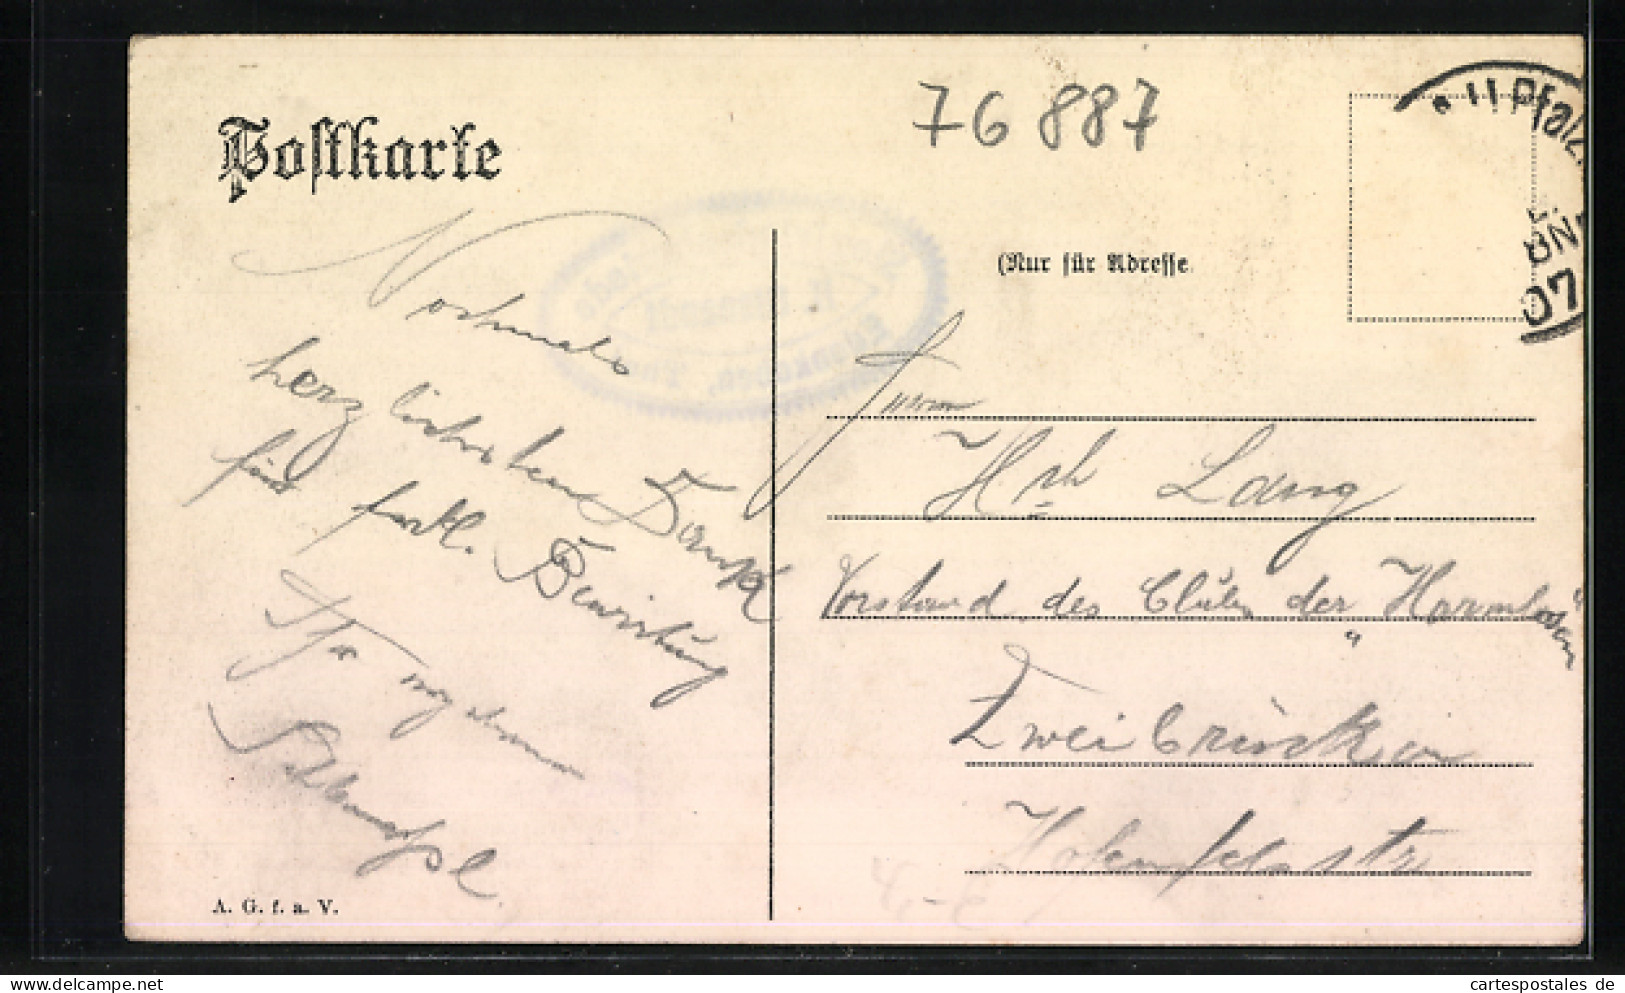 Postkarte
76 887
Pfalz.
BN
07
(Nur für Adresse
Nochmals
herzlichsten Dank
für frdl. Bewirtung
A. G. f. a. V.
Herrn
Hch Lang
Vorstand des Clubs der „Harmlosen"
Zweibrücken
Hofenfelsstr
www.cartespostales.de